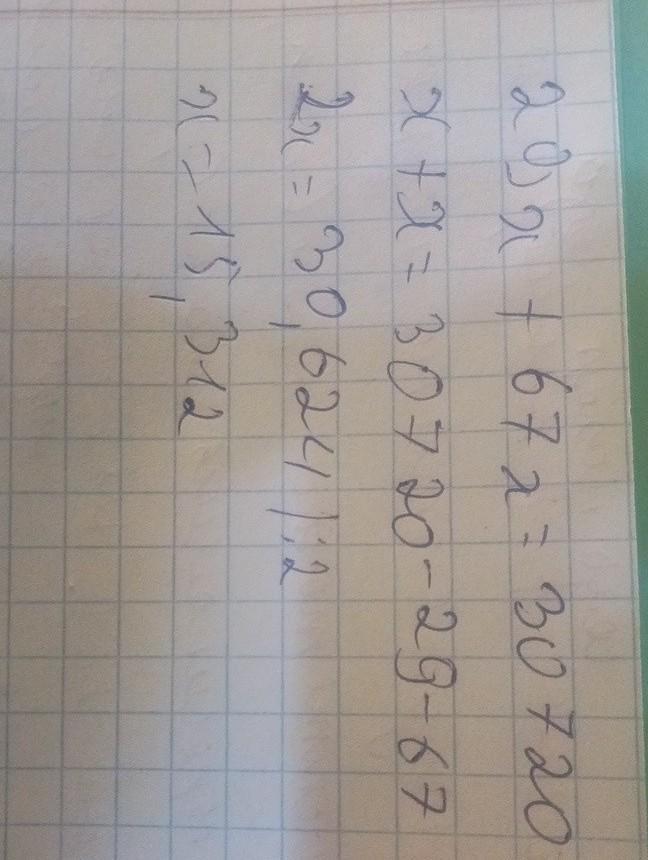 29x + 67x = 30720
x + x = 30720 - 29 - 67
2x = 30,624 | : 2
x = 15,312